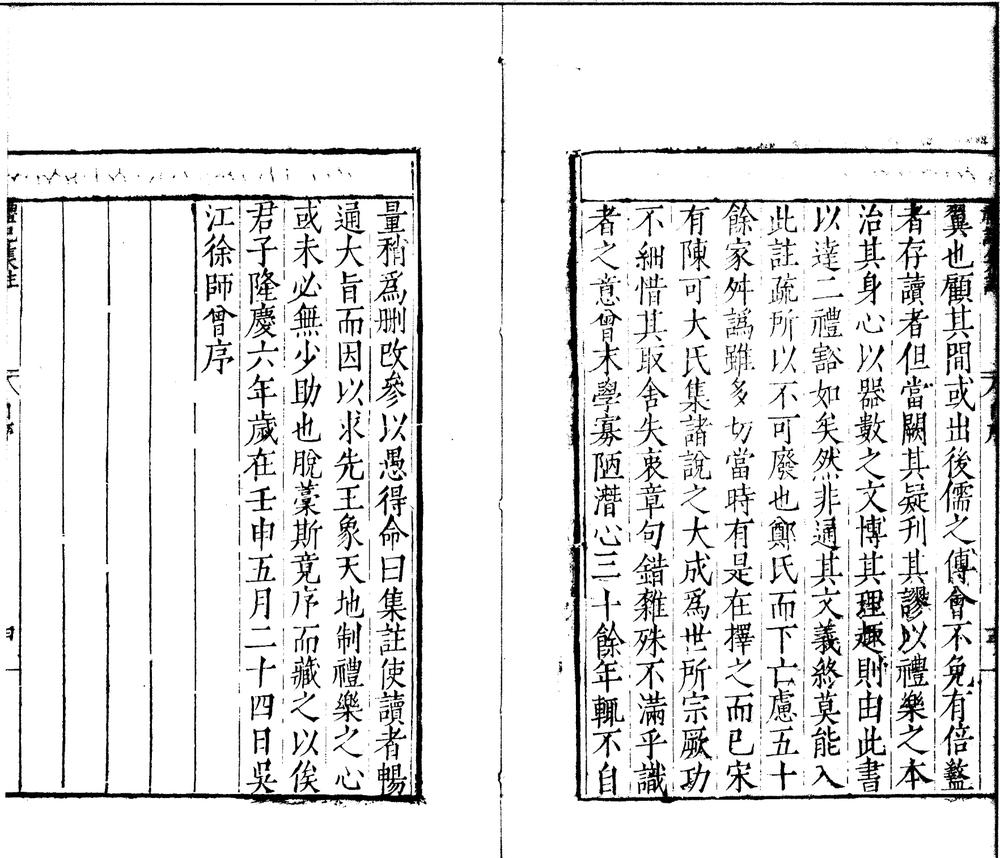 翼也顧其間或出後儒之傅會不免有倍盭
者存讀者但當闕其疑刊其謬以禮樂之本
治其身心以器數之文博其理趣則由此書
以達二禮豁如矣然非通其文義終莫能入
此註疏所以不可廢也鄭氏而下亡慮五十
餘家舛譌雖多切當時有是在擇之而已宋
有陳可大氏集諸說之大成爲世所宗厥功
不細惜其取舍失衷章句錯雜殊不滿乎識
者之意曾末學寡陋潛心三十餘年輒不自
量稍爲删改參以愚得命曰集註使讀者暢
通大旨而因以求先王象天地制禮樂之心
或未必無少助也脫藁斯竟序而藏之以俟
君子隆慶六年歲在壬申五月二十四日吳
江徐師曾序
禮記集註